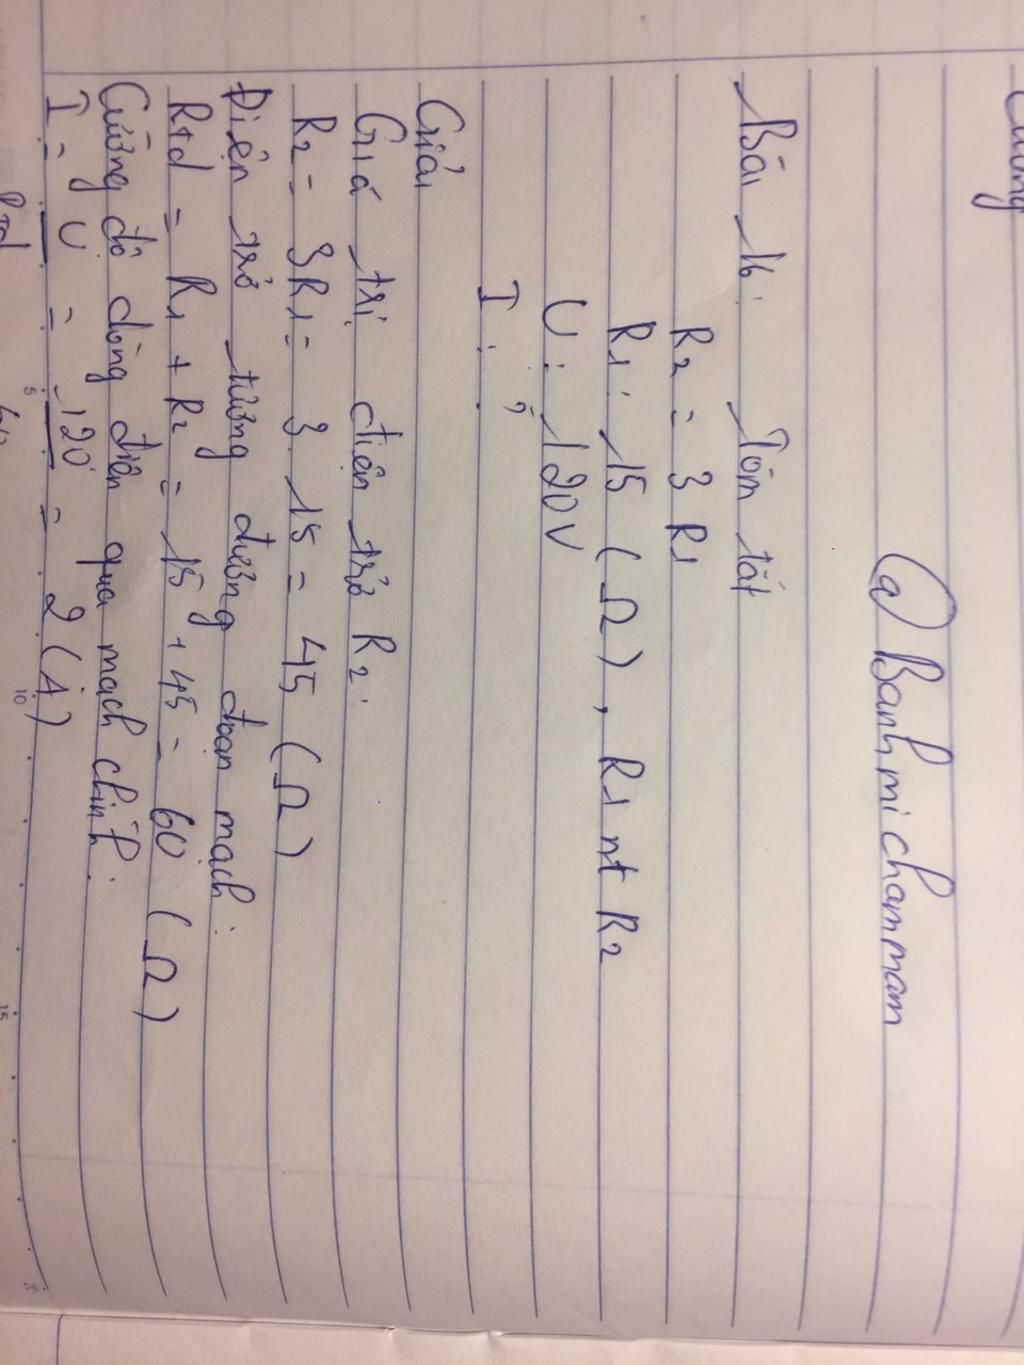 @ Banhmichammam
Bài 16: Tóm tắt
R2 = 3 R1
R1: 15 (Ω), R1 nt R2
U: 120V
I:
Giải
Giá trị điện trở R2:
R2 = 3R1 = 3.15 = 45 (Ω)
Điện trở tương đương đoạn mạch:
Rtđ = R1 + R2 = 15 + 45 = 60 (Ω)
Cường độ dòng điện qua mạch chính:
I = U = 120 = 2 (A)
Rtđ 60